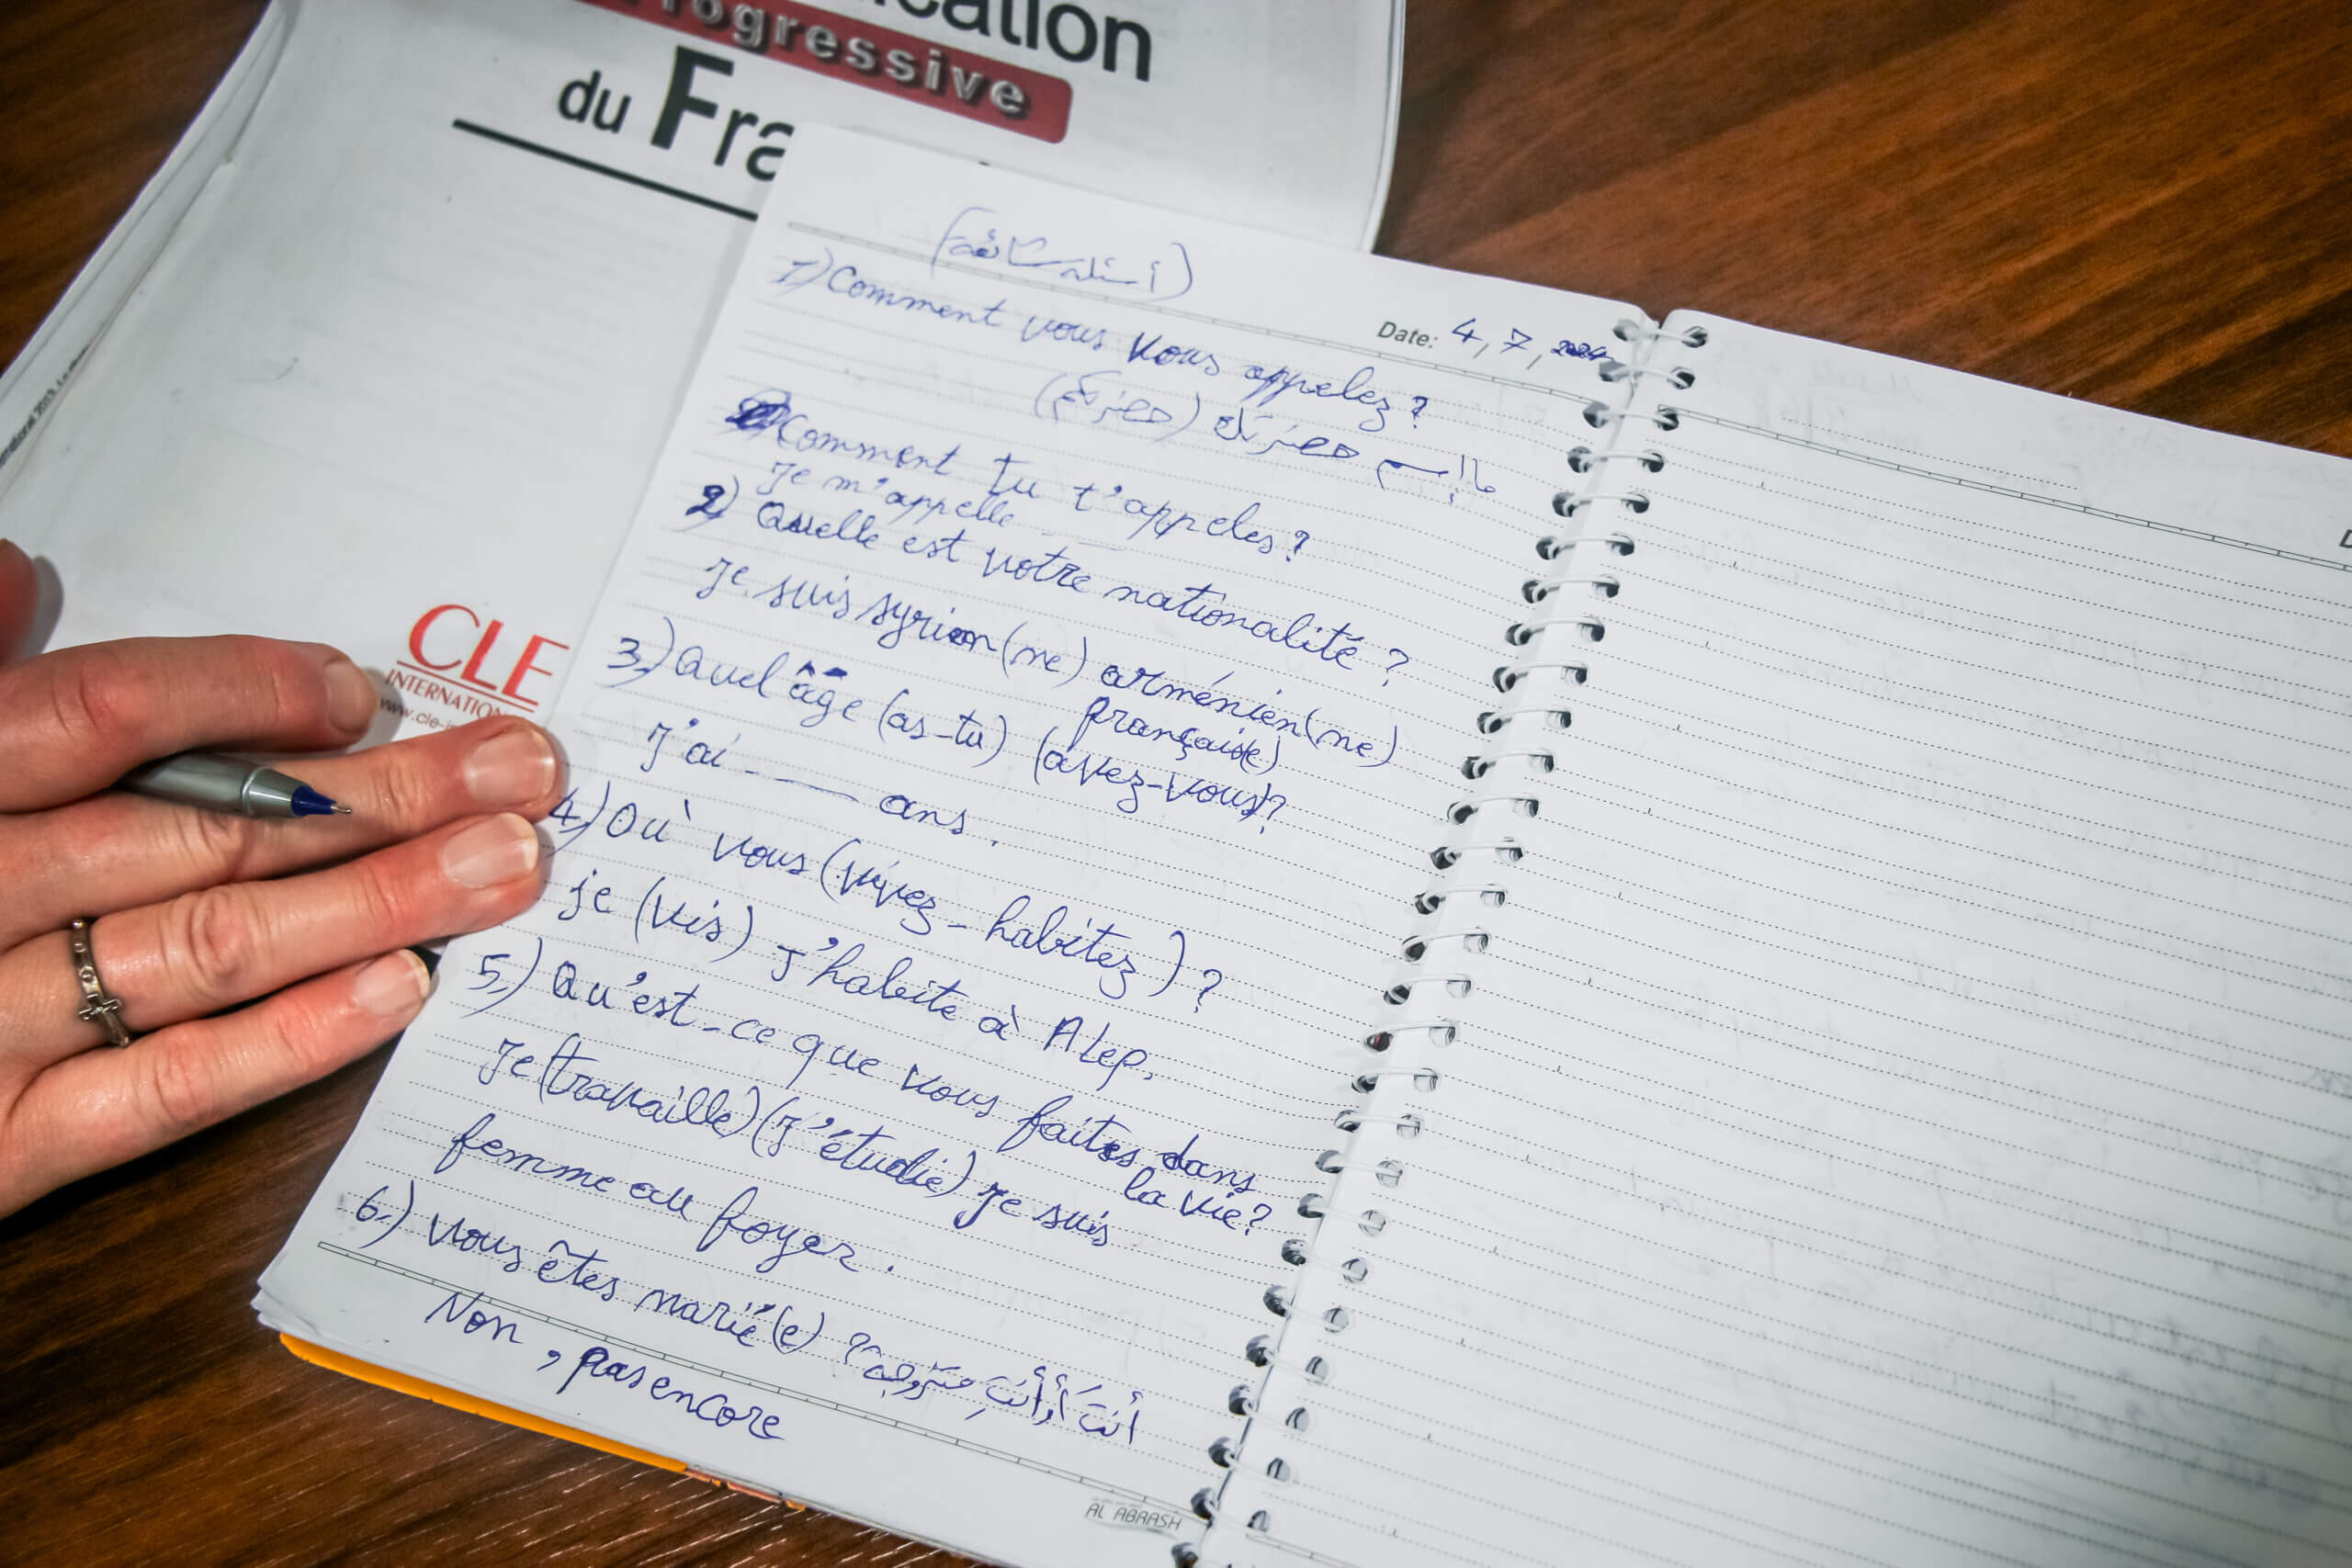 cation
Progressive
du Fra
CLE
INTERNATION
www.cle-i
(أسئلة شائعة)
Date: 4, 7, 2024
1) Comment vous vous appelez?
ما إسم حضرتك (حضرتكم)
Comment tu t'appeles?
Je m'appelle
2) Quelle est votre nationalité?
Je suis syrien(ne) arménien(ne)
française)
3) Quel âge (as-tu) (avez-vous)?
J'ai ans.
4) Où vous (vivez - habitez)?
je (vis) J'habite à Alep.
5) Qu'est-ce que vous faites dans
la vie?
Je (travaille) (J'étudie) Je suis
femme au foyer.
6) Vous êtes marié(e)? أنتَ أو أنتِ متزوجة
Non, pas encore
AL ABRASH